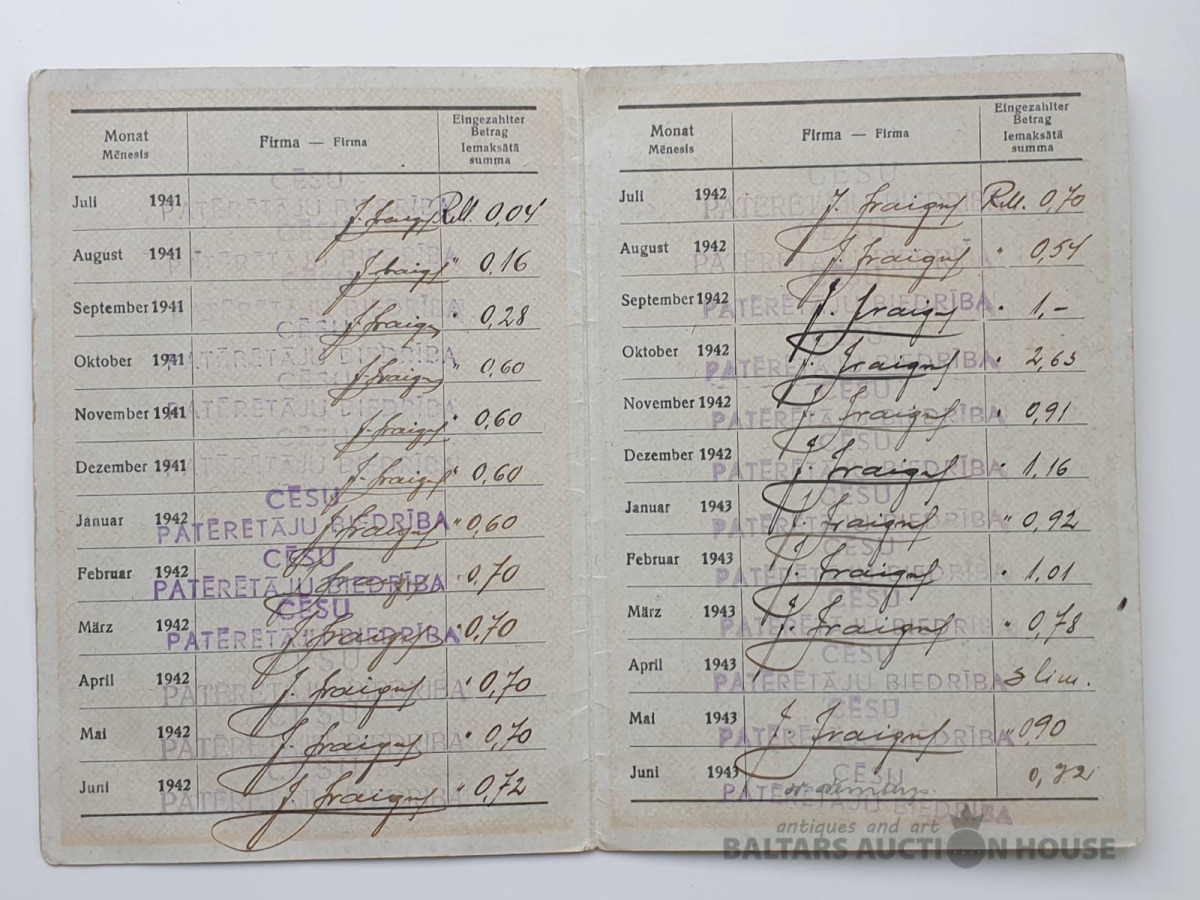 Monat
Mēnesis
Firma — Firma
Eingezahlter
Betrag
Iemaksātā
summa
Juli 1941 CĒSU PATĒRĒTĀJU BIEDRĪBA J. RM. 0,04
August 1941 PATĒRĒTĀJU BIEDRĪBA J. " 0,16
September 1941 PATĒRĒTĀJU BIEDRĪBA J. " 0,28
Oktober 1941 CĒSU PATĒRĒTĀJU BIEDRĪBA J. " 0,60
November 1941 CĒSU PATĒRĒTĀJU BIEDRĪBA J. " 0,60
Dezember 1941 CĒSU PATĒRĒTĀJU BIEDRĪBA J. " 0,60
Januar 1942 CĒSU PATĒRĒTĀJU BIEDRĪBA J. " 0,60
Februar 1942 CĒSU PATĒRĒTĀJU BIEDRĪBA J. " 0,70
März 1942 CĒSU PATĒRĒTĀJU BIEDRĪBA J. " 0,70
April 1942 PATĒRĒTĀJU BIEDRĪBA J. " 0,70
Mai 1942 PATĒRĒTĀJU BIEDRĪBA J. " 0,70
Juni 1942 CĒSU PATĒRĒTĀJU BIEDRĪBA J. " 0,72
Monat
Mēnesis
Firma — Firma
Eingezahlter
Betrag
Iemaksātā
summa
Juli 1942 CĒSU PATĒRĒTĀJU BIEDRĪBA J. RM. 0,70
August 1942 PATĒRĒTĀJU BIEDRĪBA J. " 0,54
September 1942 PATĒRĒTĀJU BIEDRĪBA J. " 1,-
Oktober 1942 PATĒRĒTĀJU BIEDRĪBA J. " 2,63
November 1942 CĒSU PATĒRĒTĀJU BIEDRĪBA J. " 0,91
Dezember 1942 CĒSU PATĒRĒTĀJU BIEDRĪBA J. " 1,16
Januar 1943 CĒSU PATĒRĒTĀJU BIEDRĪBA J. " 0,92
Februar 1943 CĒSU PATĒRĒTĀJU BIEDRĪBA J. " 1,01
März 1943 CĒSU PATĒRĒTĀJU BIEDRĪBA J. " 0,78
April 1943 CĒSU PATĒRĒTĀJU BIEDRĪBA slim.
Mai 1943 CĒSU PATĒRĒTĀJU BIEDRĪBA J. " 0,90
Juni 1943 CĒSU PATĒRĒTĀJU BIEDRĪBA
antiques and art
BALTARS AUCTION HOUSE